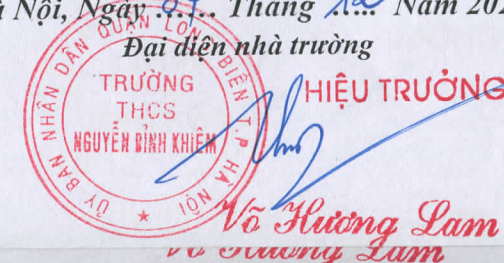 Nội, Ngày 07 Tháng 12 Năm 202
Đại diện nhà trường
ỦY BAN NHÂN DÂN QUẬN LONG BIÊN T.P HÀ NỘI
TRƯỜNG
THCS
NGUYỄN BỈNH KHIÊM
HIỆU TRƯỞNG
Võ Hương Lam
Võ Hương Lam